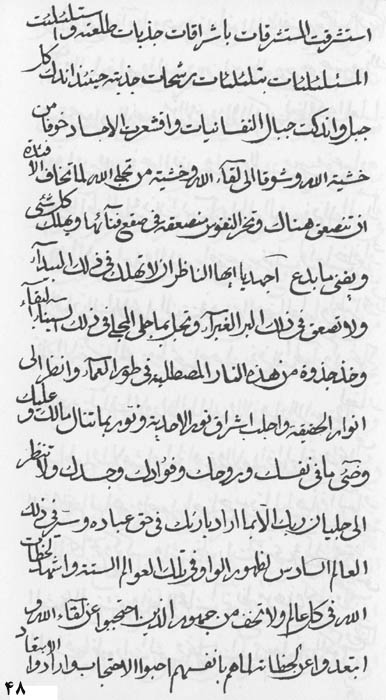 استشرقت المستشرقات باشراقات جذبات طلعته و استلئلئت
المستلئلئات بتلئلئات رشحات جذبته حینئذ اندك كل
جبل و اندكت جبال النفسانیات و اقشعرت الاجساد خوفا من
خشیة الله و شوقا الی لقاء الله و خشیة من تجلی الله لما تخاف الافئدة
ان تنصعق هناك و تخر النفوس منصعقة فی صقع فنائها و یهلك كلشیء
و یفنی ما بدع ایها الناظر ان لا تهلك فی ذلك البیداء
و لا تصعق فی ذلك البر الغبراء و تحمل بما حمل فی ذلك السیناء
و خذ جذوة من هذه النار المصطلیة فی طور العماء و انظر الی
انوار الحقیقة و احك اشراق نور الاحدیة و نور بما تنال مالك و علیك
و ضیء ما فی نفسك و روحك و فؤادك و جسدك و لا تنظر
الی جلیان ربك الا بما اراد بارئك فی حق عباده و سر فی ذلك
العالم السادس لظهور الواو فی تلك العوالم الستة و اشهد لحظات
الله فی كل عالم و لا تخف من جمهور الذین احتجبوا عن لقاء الله و
ابتعدوا عن لحظاته لما هم بانفسهم احبوا الاحتجاب و ارادوا الابتعاد
۴۸